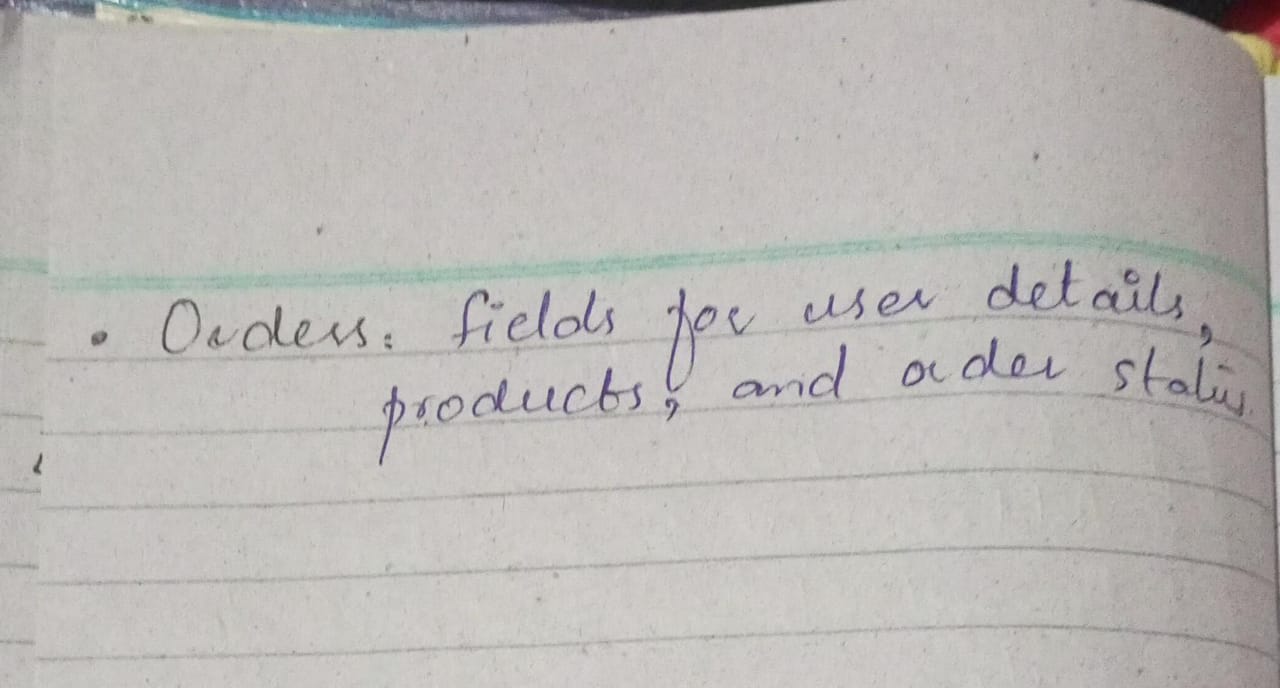 • Orders: fields for user details,
products, and order status.